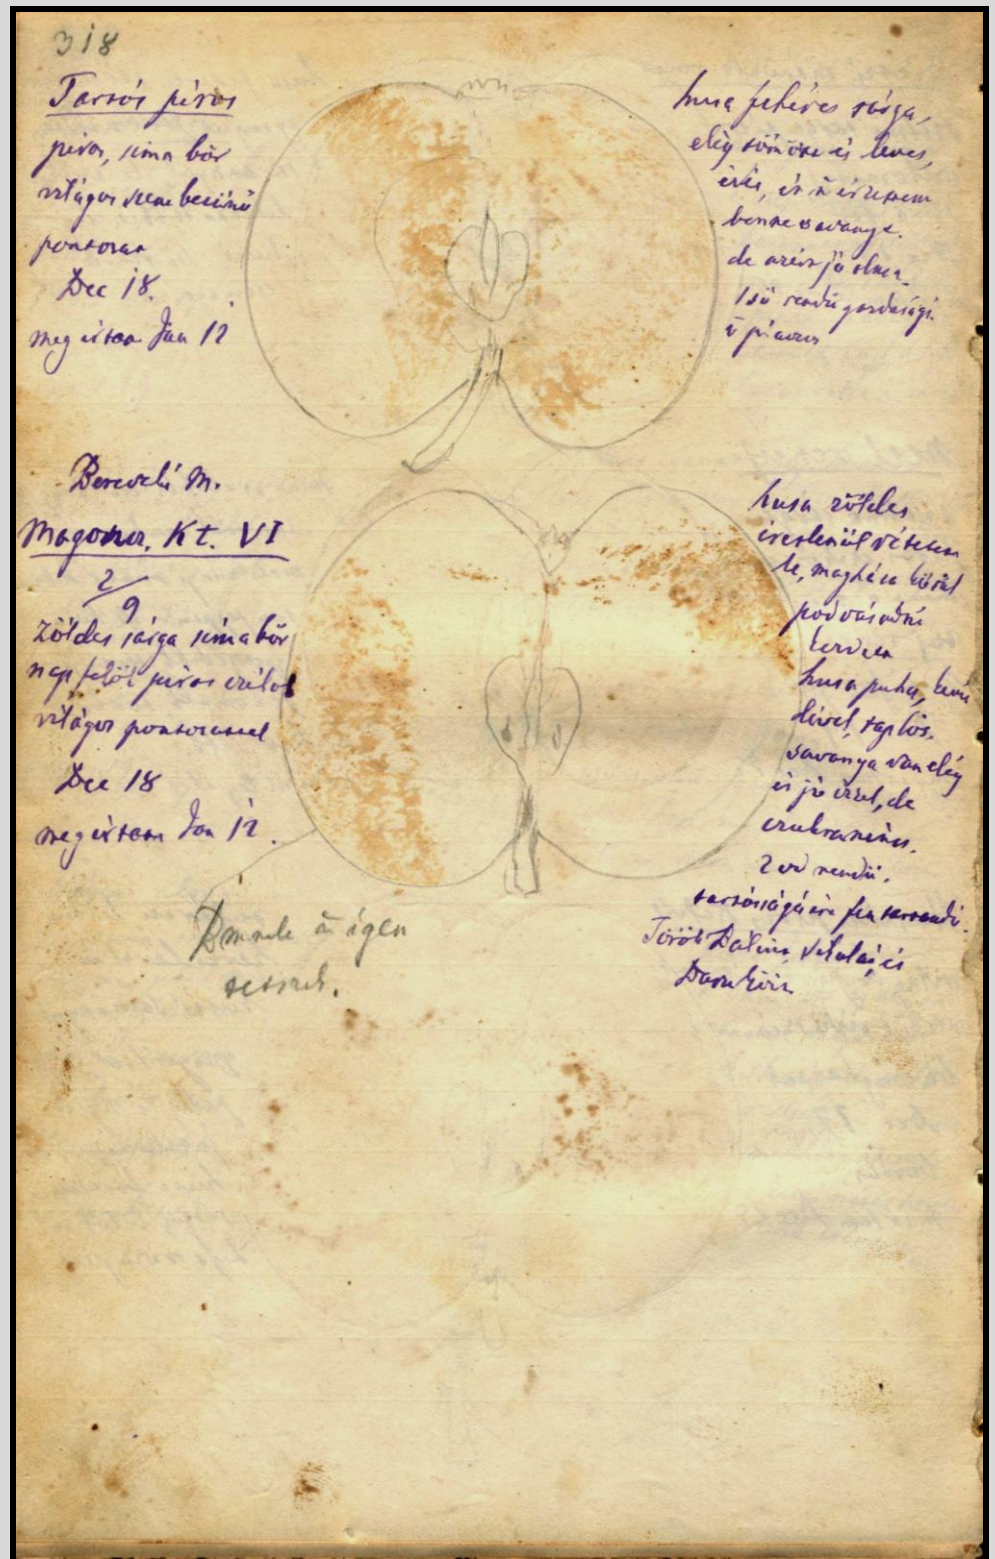 318
Tartós piros
piros, sima bőr
világos szembetünő
pontozás
Dec 18.
megértem Jan 12
husa fehéres sárga,
elég tömör és leves,
érés, és
benne savanya.
de azért jó alma
1ső rendű gazdasági
piaczos
Bereczki M.
Magonca. Kt. VI
2/9
zöldes sárga sima bőr
nap felöl piros
világos pontozással
Dec 18
megértem Jan 12.
husa zöldes
éretlenül
le, magháza körül
podvásodni
kezd
husa puha, kevés
lével, taplós.
savanya van elég
és jó izzel, de
czukra nincs.
2od rendű.
tartósságáért fen tartandó.
Török Bálint, és
igen
tetszik.